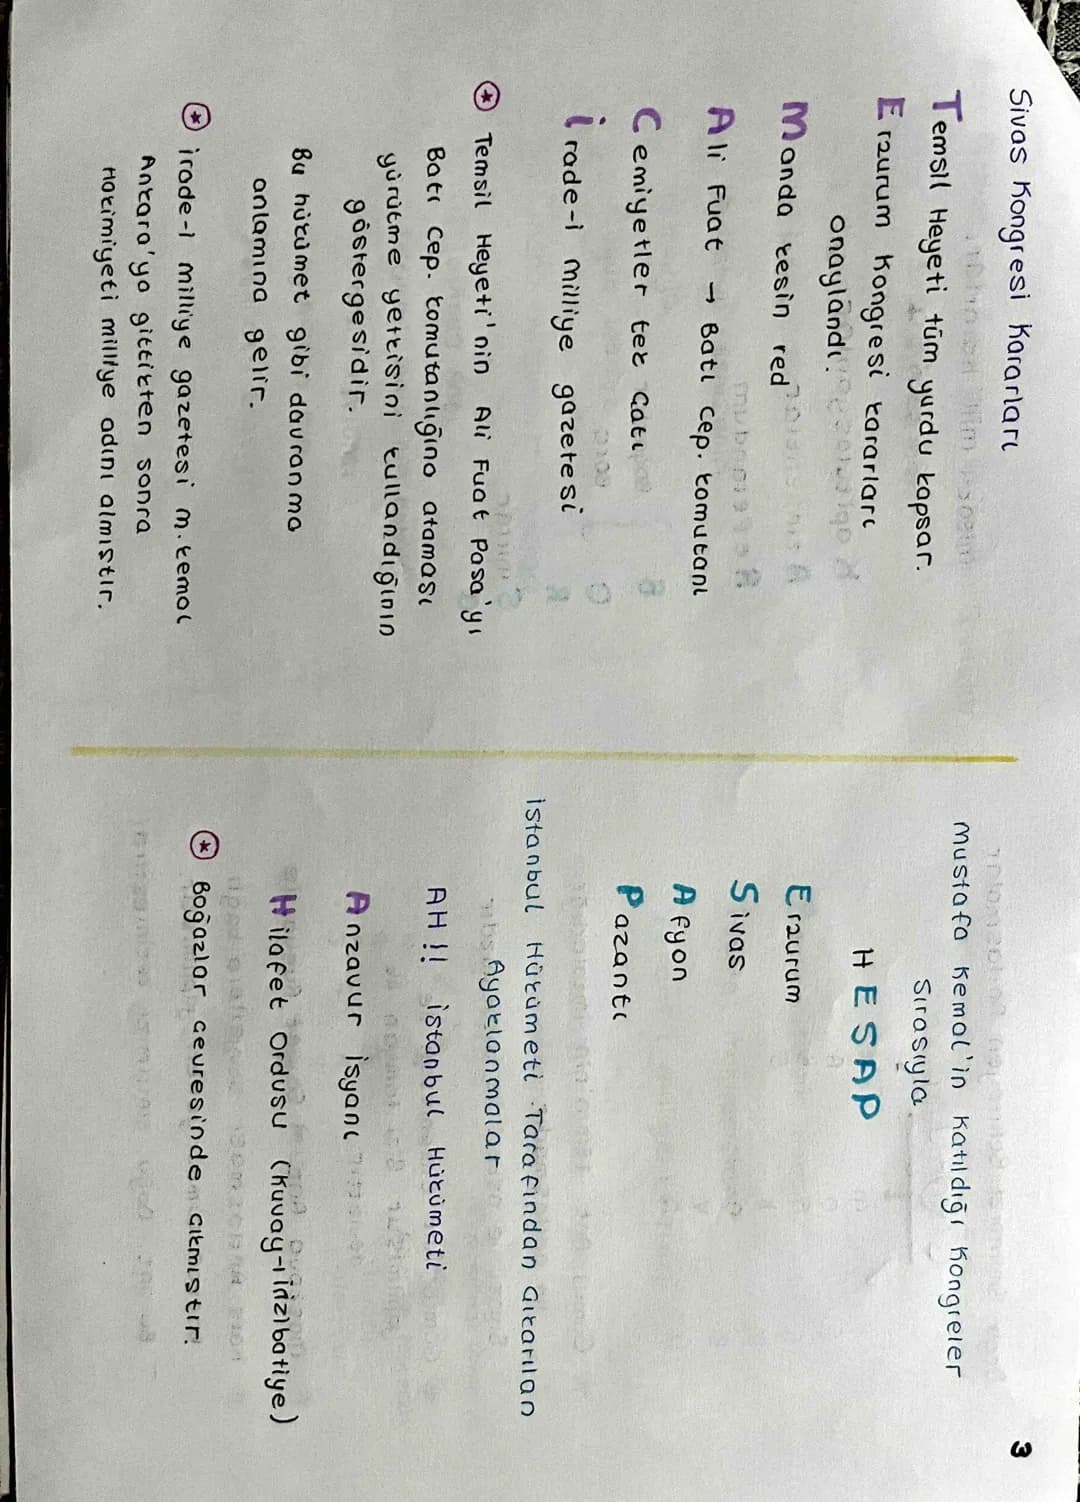 3
Sivas Kongresi Kararları
Temsil Heyeti tüm yurdu kapsar.
Erzurum Kongresi kararları
onaylandı.
Manda kesin red
Ali Fuat → Batı Cep. komutanı
Cemiyetler tek çatı
İrade-i milliye gazetesi
Temsil Heyeti'nin Ali Fuat Paşa'yı
Batı Cep. komutanlığına ataması
yürütme yetkisini kullandığının
göstergesidir.
Bu hükümet gibi davranma
anlamına gelir.
irade-i milliye gazetesi m. kemal
Ankara'ya gittikten sonra
Hakimiyeti milliye adını almıştır.
Mustafa Kemal'in Katıldığı Kongreler
Sırasıyla
HESAP
Erzurum
Sivas
Afyon
Pazantı
İstanbul Hükümeti Tarafından Çıkarılan
Ayaklanmalar
AH!! İstanbul Hükümeti
Anzavur İsyanı
Hilafet Ordusu (Kuvay-ı inzibatiye)
Boğazlar çevresinde çıkmıştır.